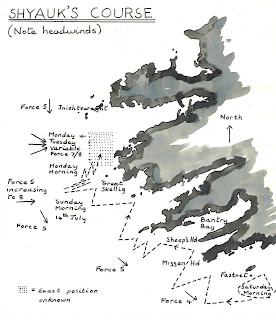 SHYAUK'S COURSE
(Note headwinds)
Force 5
Inishtearaght
North
Monday
Tuesday
Variable
Force 7/8
Monday
Morning
Force 5
increasing
To 8
Great
Skellig
Sunday
Morning
14th July
Force 5
Bantry
Bay
Sheep's Hd
Mizzen Hd
Force 5
Fastnet
Saturday
Morning
Force 4
= Exact position
unknown